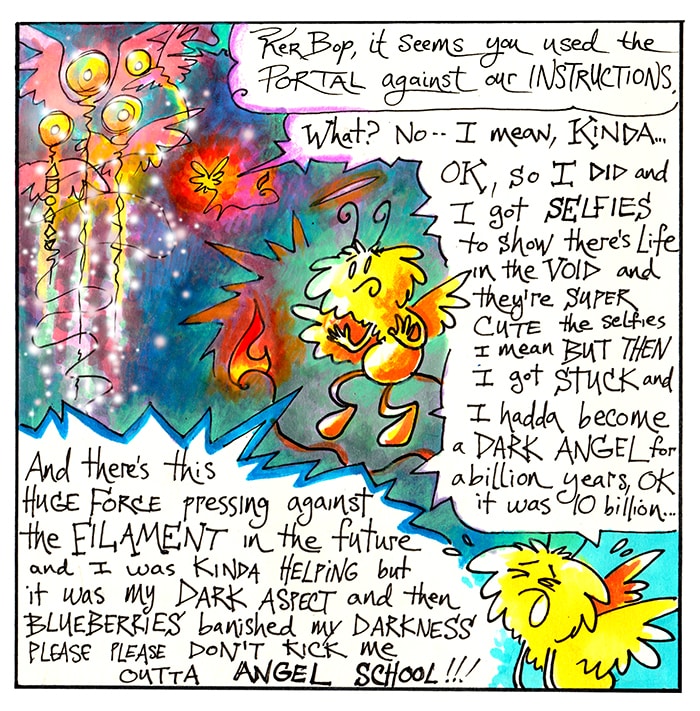 KER BOP, it seems you used the
PORTAL against our INSTRUCTIONS.
What? No-- I mean, KINDA...
OK, so I DID and
I got SELFIES
to show there's Life
in the VOID and
they're SUPER
CUTE the selfies
I mean BUT THEN
I got STUCK and
I hadda become
a DARK ANGEL for
a billion years, OK
it was 10 billion...
And there's this
HUGE FORCE pressing against
the FILAMENT in the future
and I was KINDA HELPING but
it was my DARK ASPECT and then
BLUEBERRIES banished my DARKNESS
PLEASE PLEASE DON'T KICK me
OUTTA ANGEL SCHOOL!!!